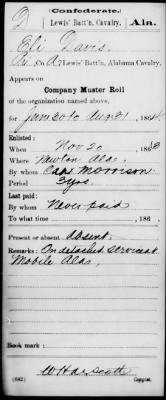 (Confederate.)
D Lewis' Batt'n, Cavalry. Ala.
Eli Davis
Pvt, Co. A, Lewis' Batt'n, Alabama Cavalry.
Appears on
Company Muster Roll
of the organization named above,
for June 30 to Aug 31, 1864.
Enlisted:
When Nov 20, 1863
Where Newton Ala.
By whom Capt Morrison
Period 3 yrs.
Last paid:
By whom Never paid
To what time , 186 .
Present or absent Absent
Remarks: On detached service at
Mobile Ala,
Book mark:
(642) Copyist.